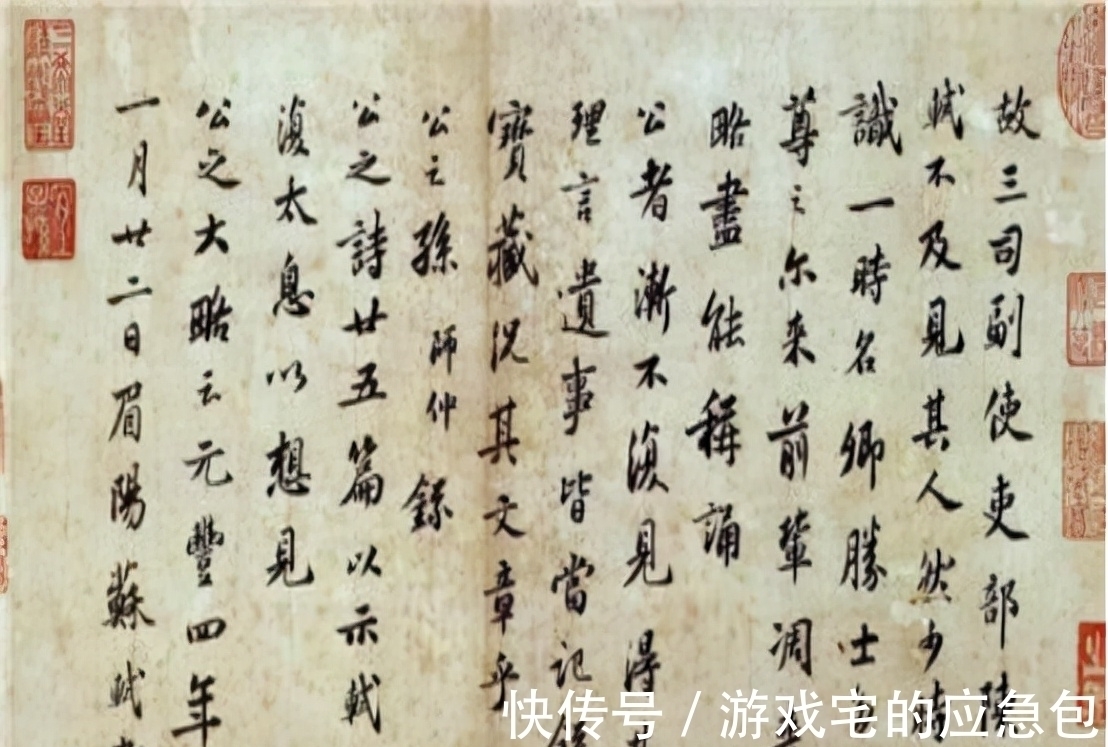 故三司副使吏部陳
軾不及見其人然少時
識一時名卿勝士
尊之尔来前輩凋
略盡能稱誦
公者漸不復見得
理言遺事皆當記
寶藏況其文章乎
公之孫師仲錄
公之詩廿五篇以示軾
復太息以想見
公之大略云元豐四年
一月廿二日眉陽蘇軾
快传号 / 游戏宅的应急包